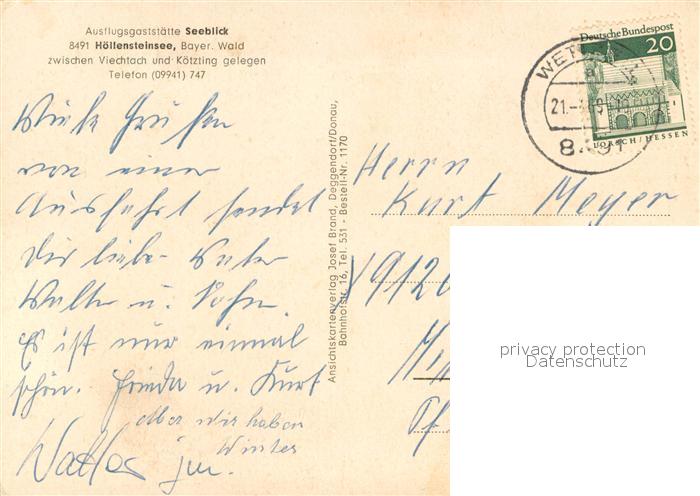 Ausflugsgaststätte Seeblick
8491 Höllensteinsee, Bayer. Wald
zwischen Viechtach und Kötzting gelegen
Telefon (09941) 747
Grüße
von einer
Ausfahrt sendet
Dir liebe Vater
Walter u. Sohn.
Es ist nur einmal
schön. Frieda u. Kurt
aber wir haben
Winter
jun.
Ansichtskartenverlag Josef Brand, Deggendorf/Donau,
Bahnhofstr. 16, Tel. 531 - Bestell-Nr. 1170
Deutsche Bundespost
20
LORSCH/HESSEN
WET
21.
Herrn
Kurt Meyer
privacy protection
Datenschutz